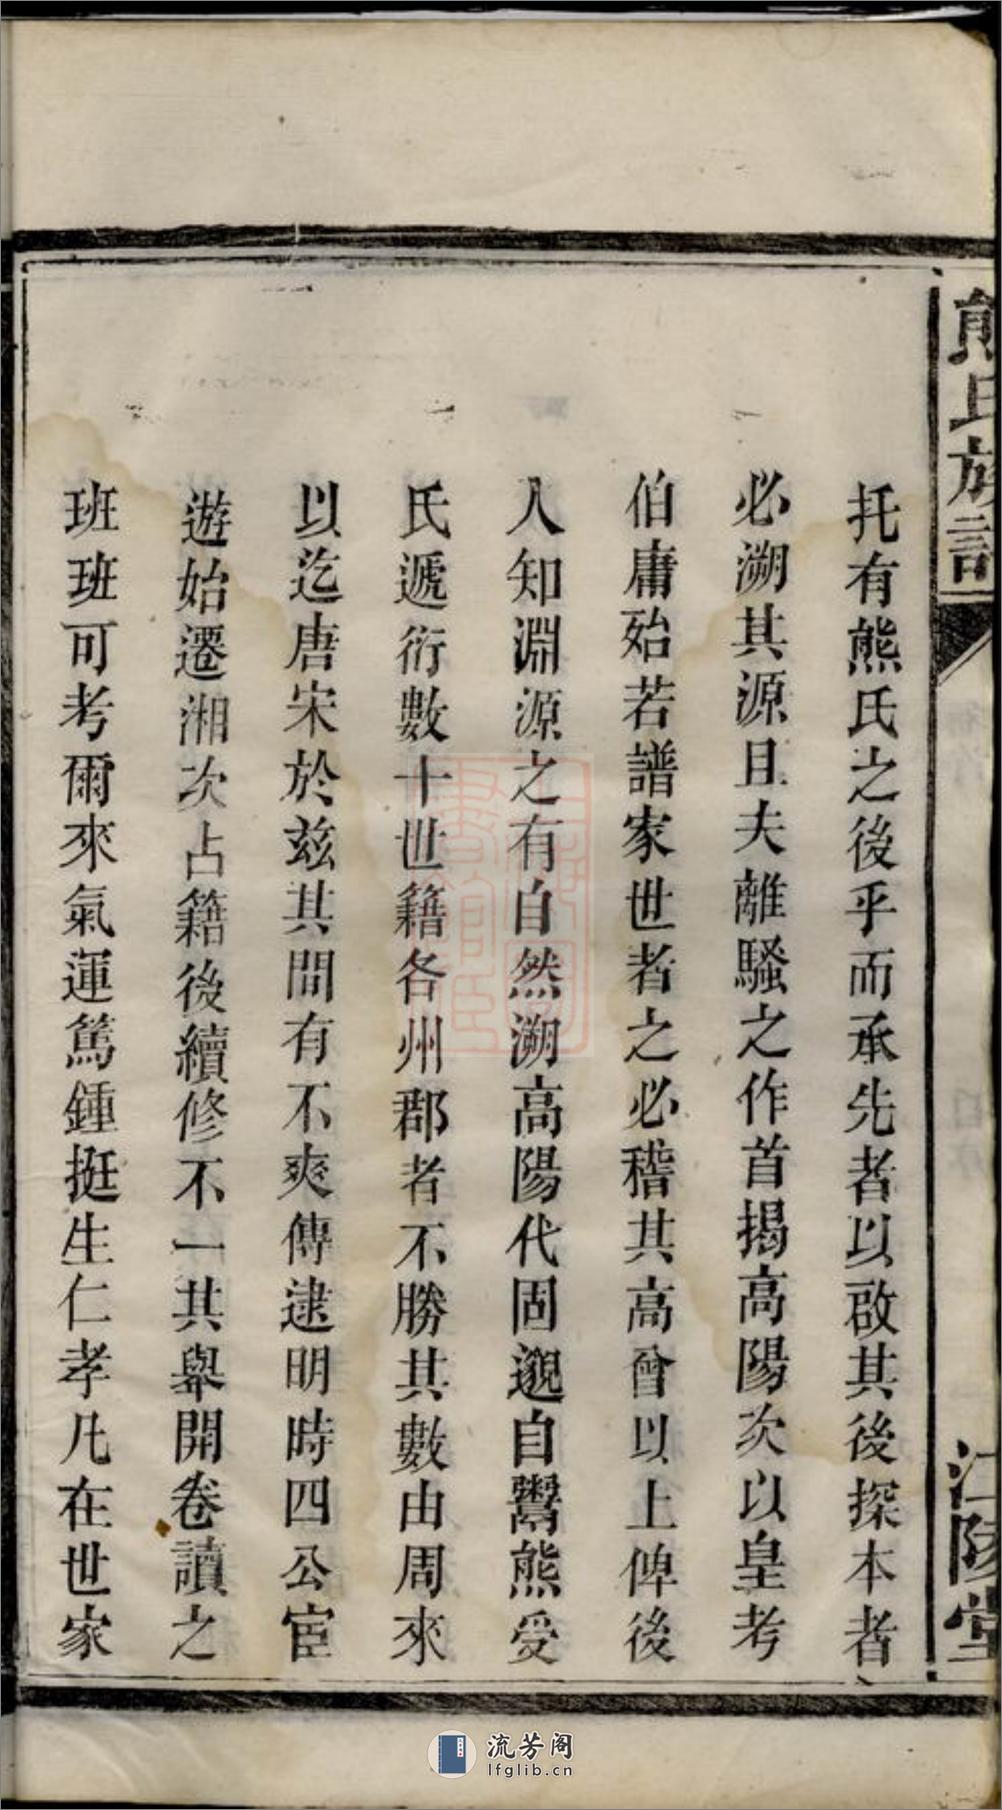 熊氏族譜
江陵堂
托有熊氏之後乎而承先者以啟其後探本者
必溯其源且夫離騷之作首揭高陽次以皇考
伯庸殆若譜家世者之必稽其高曾以上俾後
人知淵源之有自然溯高陽代固邈自鬻熊受
氏遞衍數十世籍各州郡者不勝其數由周來
以迄唐宋於兹其間有不爽傳逮明時四公宦
遊始遷湘次占籍後續修不一其舉開卷讀之
班班可考爾來氣運篤鍾挺生仁孝凡在世家
流芳阁
lfglib.cn